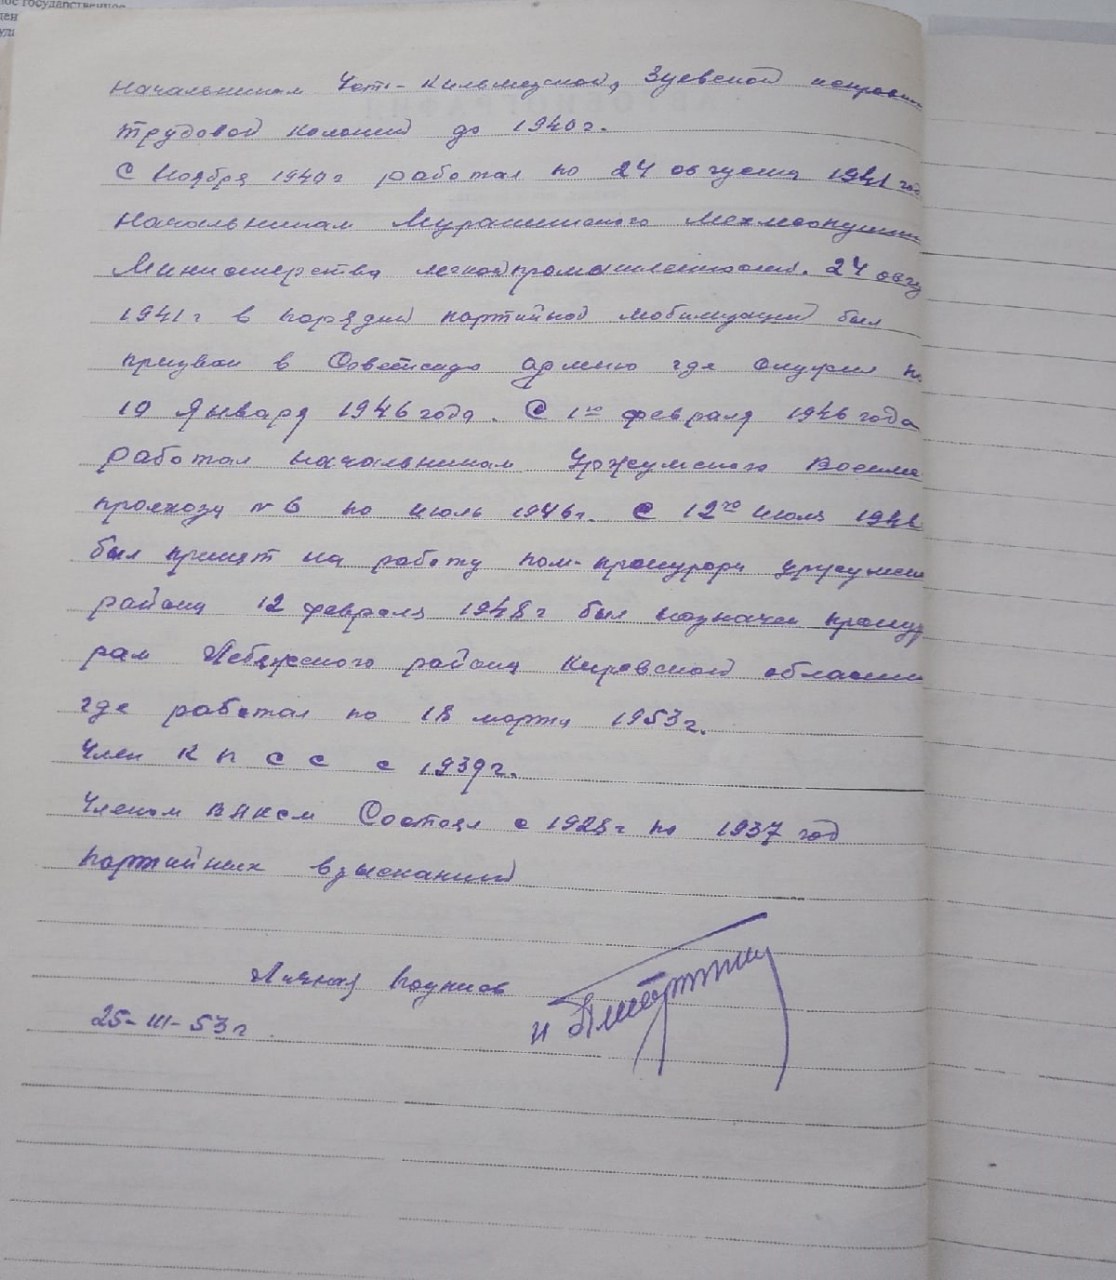 ное государственное
ден
ули
начальником Усть-Кильмезской, Зуевской исправи
трудовой колонии до 1940 г.
С Ноября 1940 г работал по 24 августа 1941 год
начальником Мурашинского Мехлесопункт
Министерства легкой промышленности. 24 авгу
1941 г в порядке партийной мобилизации был
призван в Советскую армию где служил по
10 Января 1946 года. С 1го февраля 1946 года
работал начальником Уржумского Военно
прод №6 по июль 1946 г. С 12го июля 1946
был принят на работу пом. прокурора Уржумск
района 12 февраля 1948 г был назначен проку
ром Лебяжского района Кировской области
где работал по 18 марта 1953 г.
Член КПСС с 1939 г.
Членом ВЛКСМ Состоял с 1928 г по 1937 год
партийных взысканий
25-III-53 г